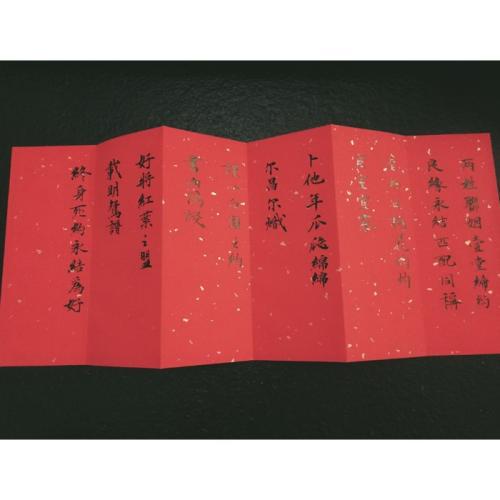 两姓聯姻壹堂締約
良缘永结匹配同稱
看此日桃花灼灼
宜室宜家
卜他年瓜瓞綿綿
尔昌尔熾
謹以白頭之約
書向鴻箋
好將紅葉之盟
載明鴛譜
終身所約永結為好